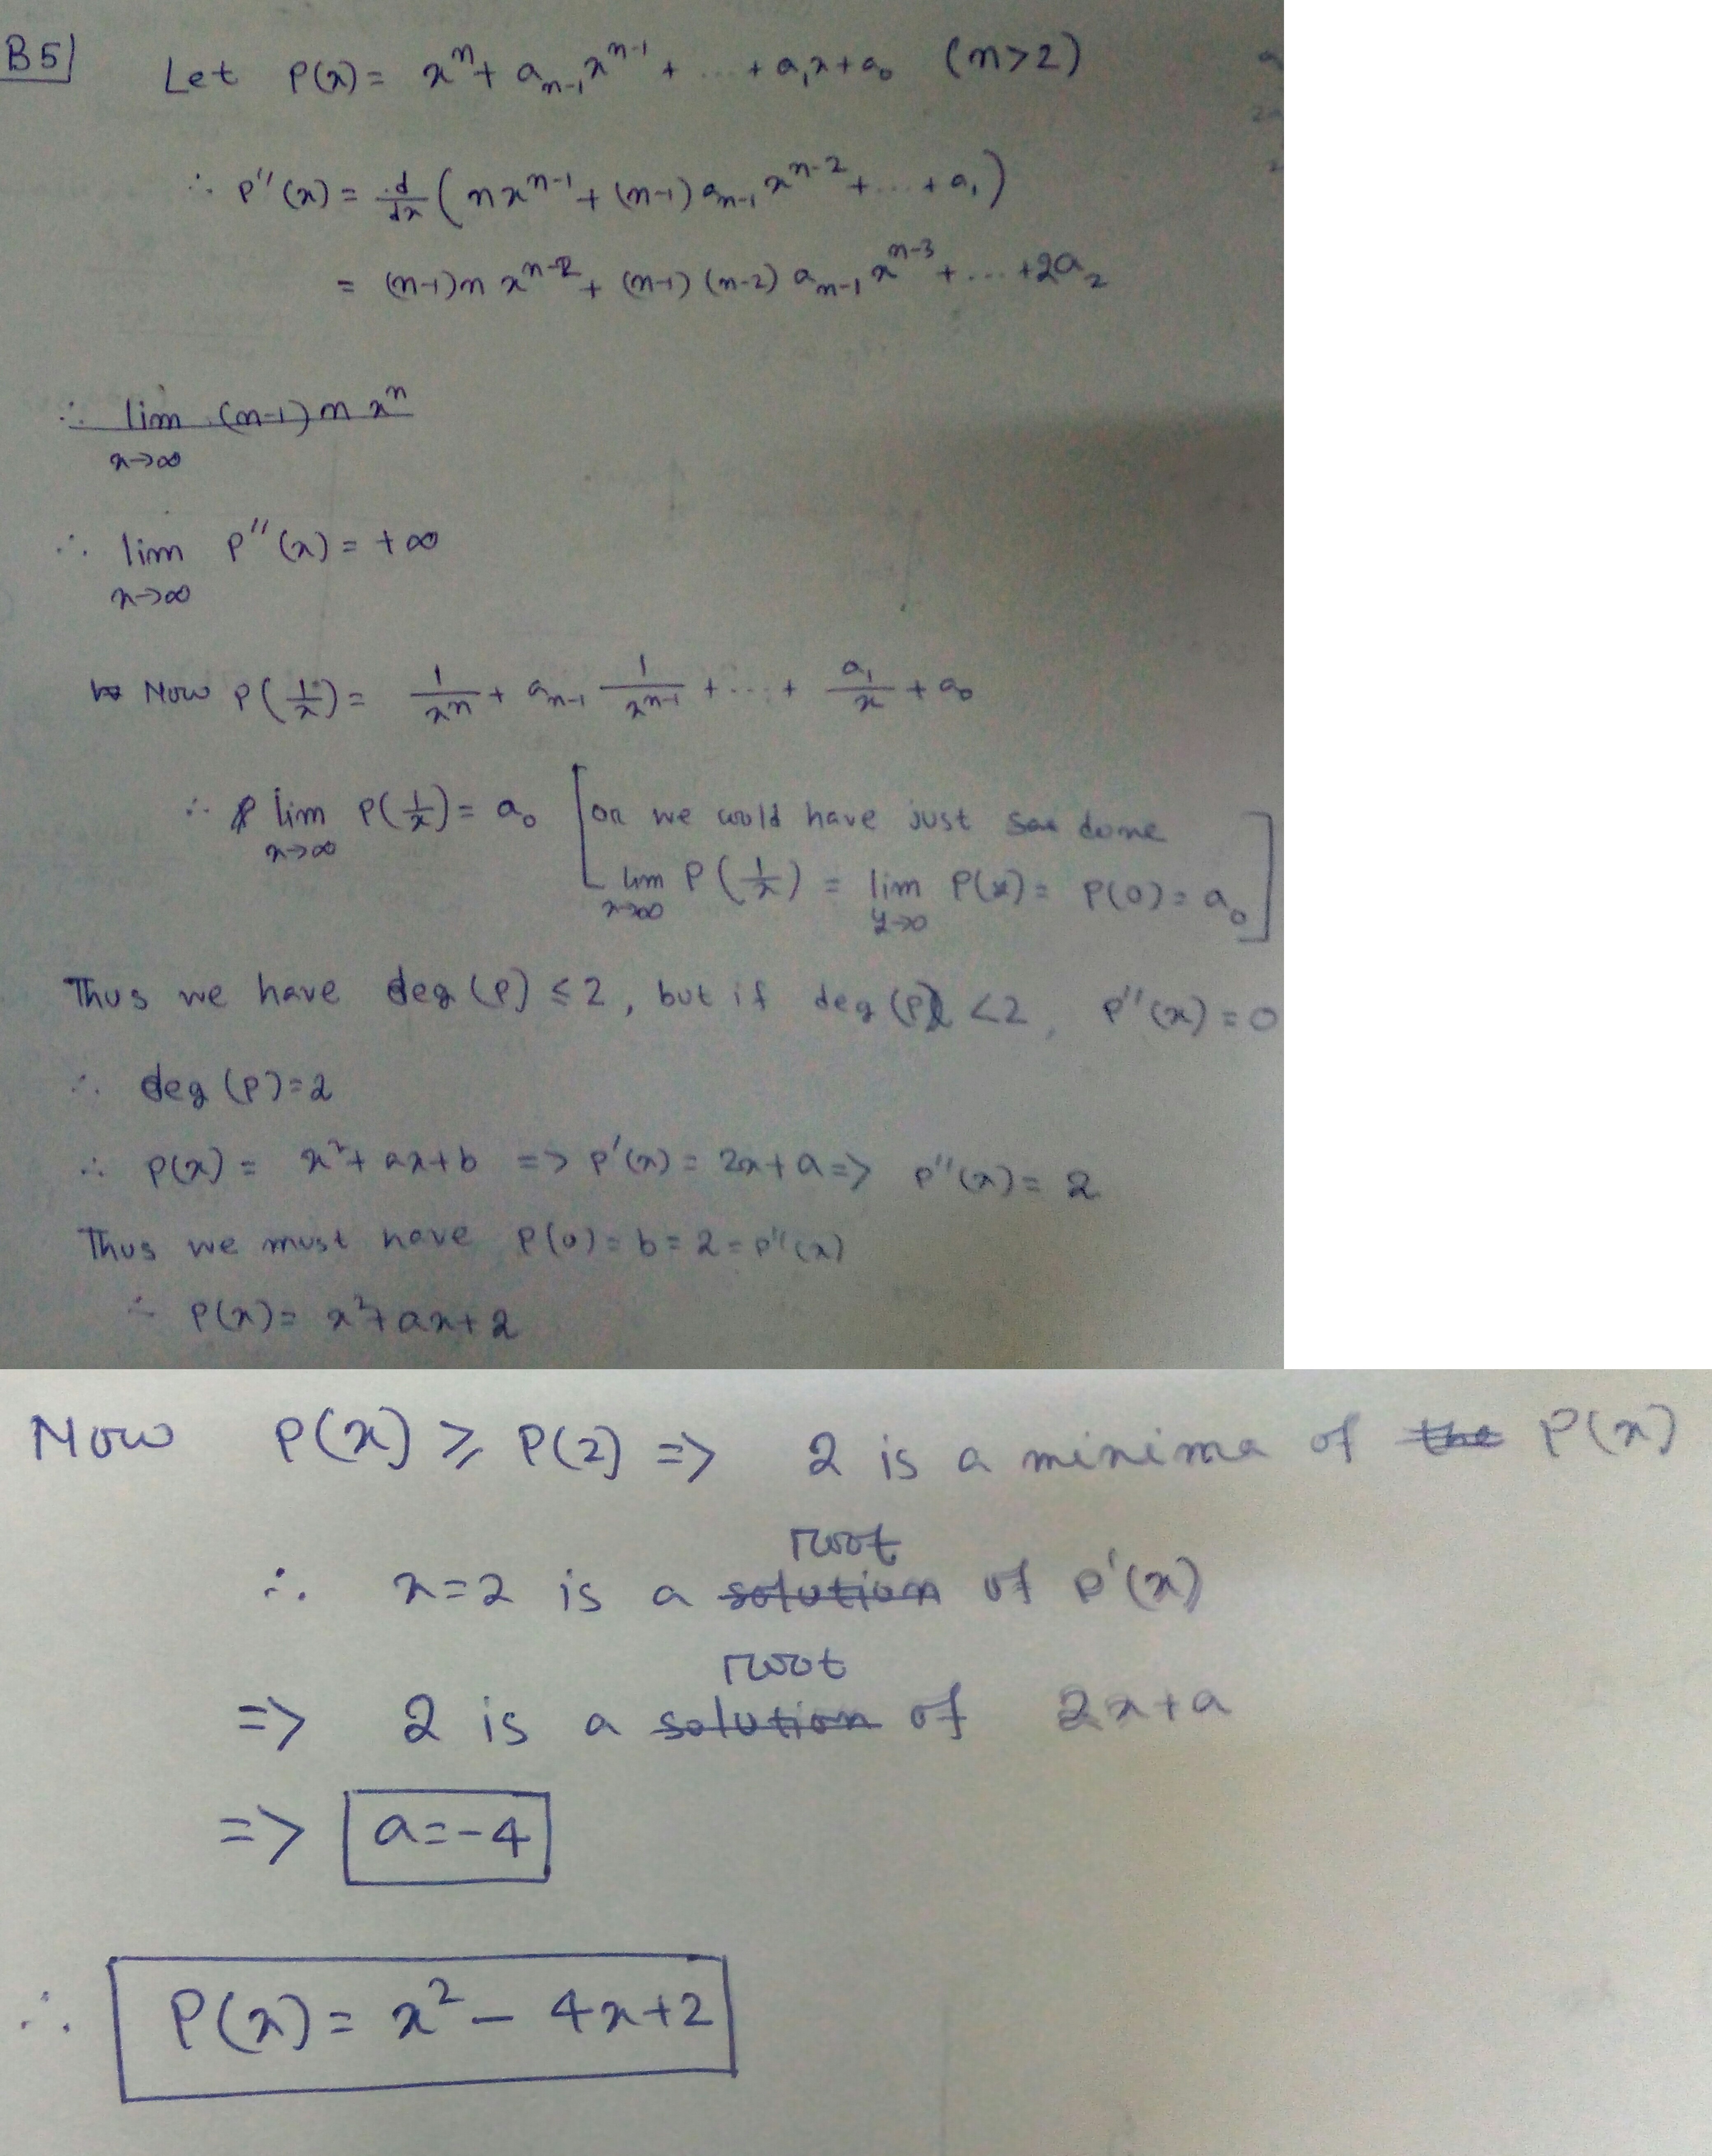 B5)
Let P(x) = x^n + a_{n-1}x^{n-1} + ... + a_1x + a_0 (n>2)
∴ P''(x) = d/dx (nx^{n-1} + (n-1)a_{n-1}x^{n-2} + ... + a_1)
= (n-1)n x^{n-2} + (n-1)(n-2) a_{n-1} x^{n-3} + ... + 2a_2
∴ lim_{x→∞} (n-1) n x^n
∴ lim_{x→∞} P''(x) = +∞
Now P(1/x) = 1/x^n + a_{n-1} 1/x^{n-1} + ... + a_1/x + a_0
∴ lim_{x→∞} P(1/x) = a_0 [or we could have just done
lim_{x→∞} P(1/x) = lim_{y→0} P(y) = P(0) = a_0]
Thus we have deg(P) ≤ 2, but if deg(P) < 2, P''(x) = 0
∴ deg(P) = 2
∴ P(x) = x^2 + ax + b => P'(x) = 2x + a => P''(x) = 2
Thus we must have P(0) = b = 2 = P''(x)
∴ P(x) = x^2 + ax + 2
Now P(x) ≥ P(2) => 2 is a minima of the P(x)
root
∴ x = 2 is a solution of P'(x)
root
=> 2 is a solution of 2x + a
=> a = -4
∴ P(x) = x^2 - 4x + 2